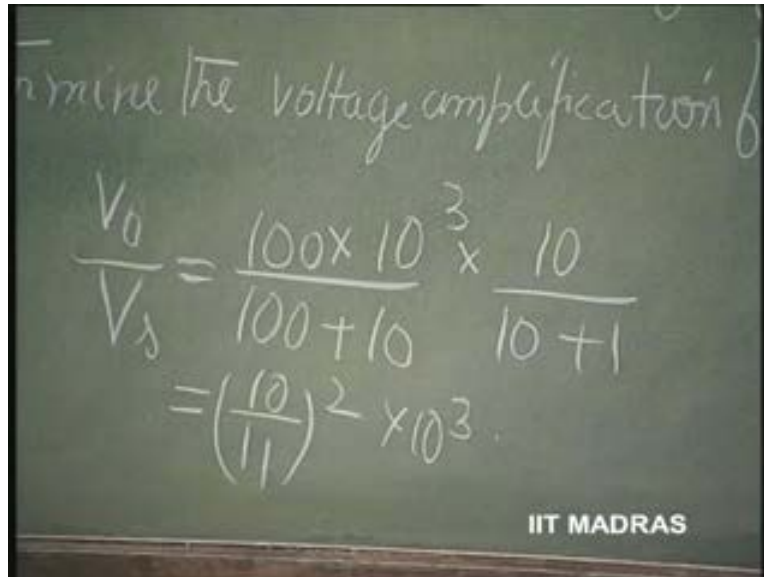 nmine The voltage amplification
V0/Vs = 100 x 10^3/100 + 10 x 10/10 + 1
= (10/11)^2 x 10^3.
IIT MADRAS